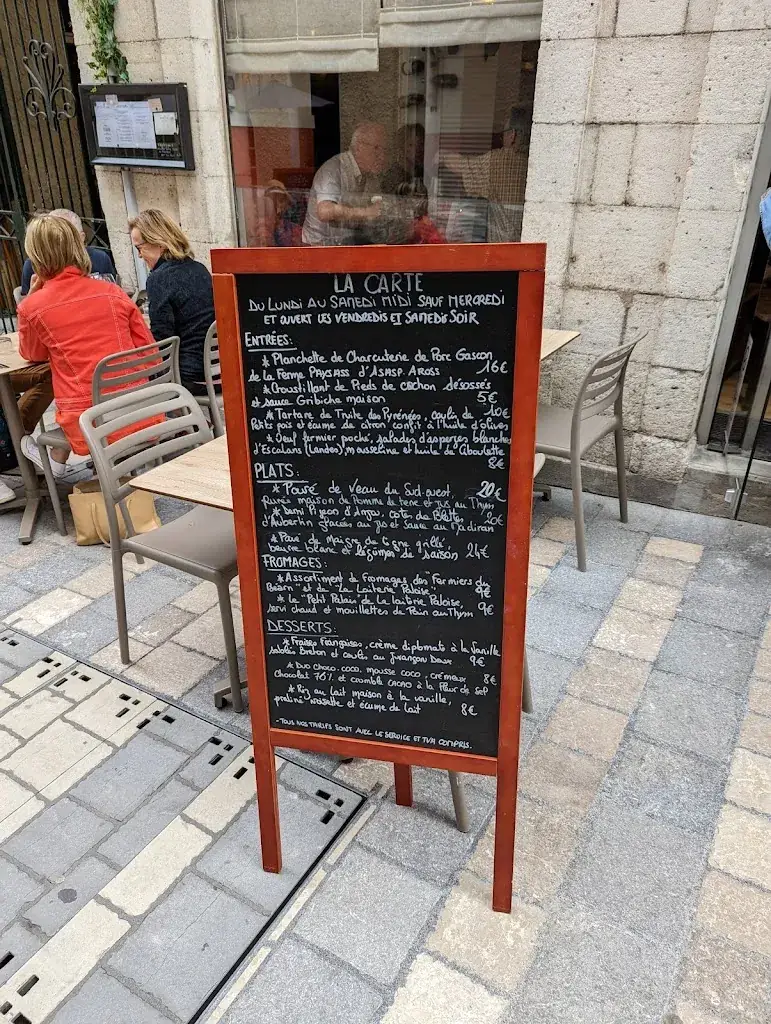 LA CARTE
DU LUNDI AU SAMEDI MIDI SAUF MERCREDI
ET OUVERT LES VENDREDIS ET SAMEDIS SOIR
ENTRÉES:
* Planchette de Charcuterie de Porc Gascon
de la Ferme PAYSASS d'ASASP. AROSS 16€
* Croustillant de Pieds de cochon désossés
et sauce Gribiche maison 5€
* Tartare de Truite des Pyrénées, coulis de 10€
Petits pois et écume de citron confit à l'huile d'olives
* Oeuf fermier poché, salades d'asperges blanches
d'Escalans (Landes), mousseline et huile de Ciboulette
8€
PLATS:
* Pavé de Veau du Sud-ouest, 20€
purée maison de Pomme de terre et jus au Thym
* Demi Pigeon d'Anjou, cotes de Blettes 20€
d'Aubertin glacées au jus et sauce au Madiran
* Pavé de Maigre de ligne grillé,
beurre blanc et légumes de saison 24€
FROMAGES:
* Assortiment de Fromages des "Fermiers du
Béarn" et de "La Laiterie Paloise" 9€
* Le "Petit Palois" de La Laiterie Paloise,
servi chaud et mouillettes de Pain au Thym 9€
DESSERTS:
* Fraises Françaises, crème diplomate à la Vanille
sablés Breton et coulis au Jurançon Doux 9€
* Duo choco.coco, mousse coco, crémeux 8€
Chocolat 70% et crumble cacao à la Fleur de sel
* Riz au lait maison à la vanille,
praliné noisette et écume de lait 8€
- TOUS NOS TARIFS SONT AVEC LE SERVICE ET TVA COMPRIS.